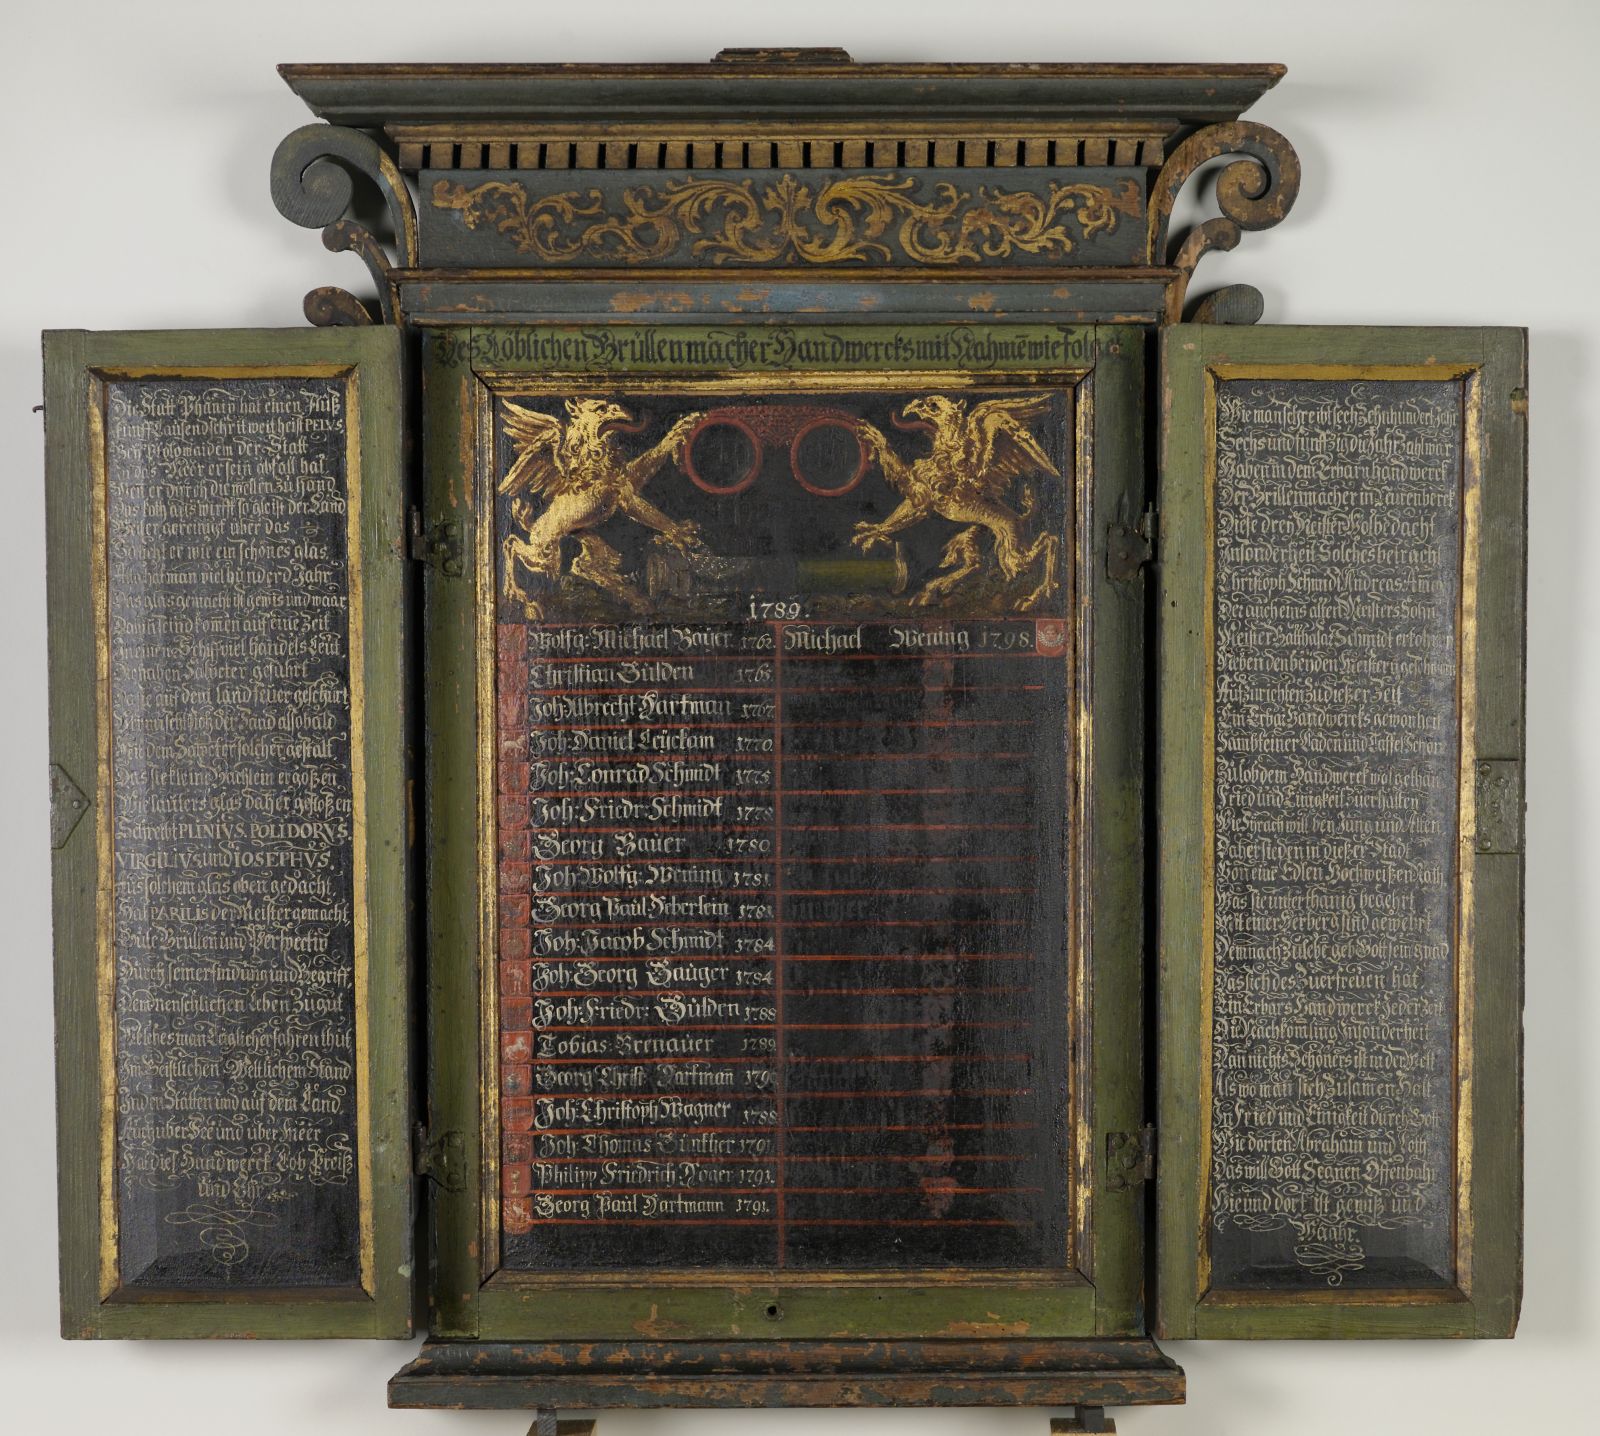 Des Löblichen Brüllenmacher Handwercks mit Nahmē wie Folget
Die Statt Phäniy hat einen Fluß
fünff Tausend schrit weit heist PELVS
Beÿ Ptolomaidem der Statt
in das Meer er sein abfall hat
Wen er durch die wellen zu hand
Das Koth aus wirfft so gleist der Sand
Weiler gereinigt über das
So sicht er wie ein schönes glas
Also hat man viel hundert Jahr
Das glas gemacht ist gewis und waar
Davin seind komen auf eine Zeit
In einen Schif viel handels Leüt
Die haben Salpeter geführt
Die auf dem land feuer geschürt
Vermischt sich der Sand alsobald
Mit dem Salpeter solcher gestalt
Das sie kleine Bächlein ergoßen
Wie lauters glas daher gefloßen
Schreibt PLINIVS. POLIDORVS.
VIRGILIVS und IOSEPHVS.
Aus solchem glas oben gedacht,
Hat PARILIS der Meister gemacht,
Gute Brüllen und Perspectiv
Durch sein erfindung und Begriff,
Dem menschlichen Leben zu gut
Welches man Täglich erfahren thut
Im Geistlichen Weltlichem Stand
In den Stätten und auf dem Land,
Auch über See und über Meer
Hat dieß Handwerck Lob Preiß
und Ehr
1789.
Wolfg: Michael Baÿer 1762 Michael Wening 1798
Christian Gülden 1765.
Joh: Albrecht Hartman 1767
Joh: Daniel Leÿckam 1770.
Joh: Conrad Schmidt 1775
Joh: Friedr: Schmidt 1778
Georg Bauer 1780
Joh Wolfg: Wening 1781
Georg Paul Heberlein 1781.
Joh: Jacob Schmidt 1784
Joh: Georg Baüger 1784
Joh: Friedr: Gülden 1788
Tobias: Brenaüer 1789
Georg Christ: Hartmañ 179
Joh: Christoph Wagner 1788
Joh: Thomas Günther 1791
Philipp Friedrich Noger 1791.
Georg Paul Hartmann 1791.
Wie man schreibt sechzehnhundert Jahr
Sechs und funffzig die Jahrzahl war
Haben in dem Erbarn handwerk
Der Brüllenmacher in Nürenberck
Diese dreÿ Meister Wolbedacht
Insonderheit Solches betracht
Christoph Schmidt Andreas
Des auch eins alten Meisters Sohn
Meister Balthasar Schmidt erkohrn
Neben den beÿden Meistern
Aufzurichten zu dießer Zeit
Ein Erbar Handwercks gewonheit
Sambt einer Laden und Taffel Schon
Zu lob dem Handwerck wol gethan
Fried und Einigkeit zu erhalten
Wie Syrach will beÿ Jung und Alten
Daher sie den in dießer Stadt
Von eim Edlen Hochweißen Rath
Was sie unterthänig begehrt
Mit einer Herberg sind gewehrt
Demnach zu lebe geb Gott sein gnad
Das sich des zu erfreüen hat
Ein Erbars Handwerck Jeder Zeit
Auf Nachkomling Insonderheit
Dan nichts Schöners ist in der Welt
Als wo man sich Zusamen Helt
In Fried und Einigkeit durch Gott
Wie dorten Abraham und Loth
Das will Gott Segnen Offenbahr
Hie und dort ist gewiß und
Waahr.